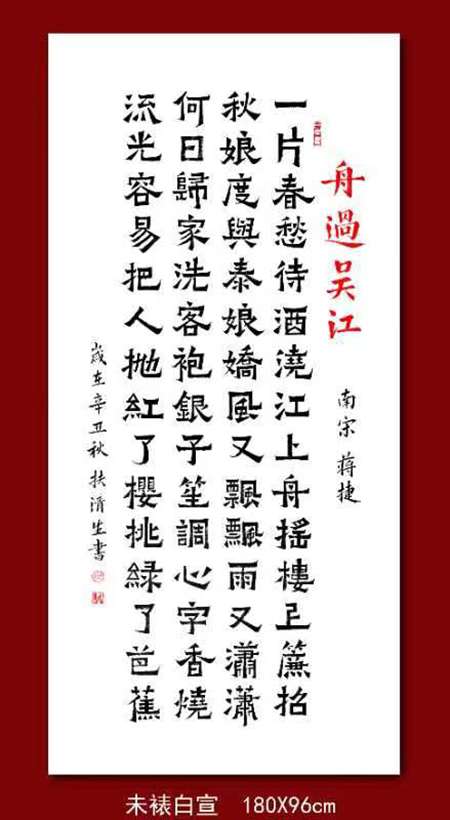 舟過吴江
南宋 蒋捷
一片春愁待酒澆江上舟摇樓上簾招
秋娘度與泰娘嬌風又飄飄雨又瀟瀟
何日歸家洗客袍銀子笙調心字香燒
流光容易把人抛紅了櫻桃綠了芭蕉
歲在辛丑秋 扶清生書
未裱白宣 180X96cm